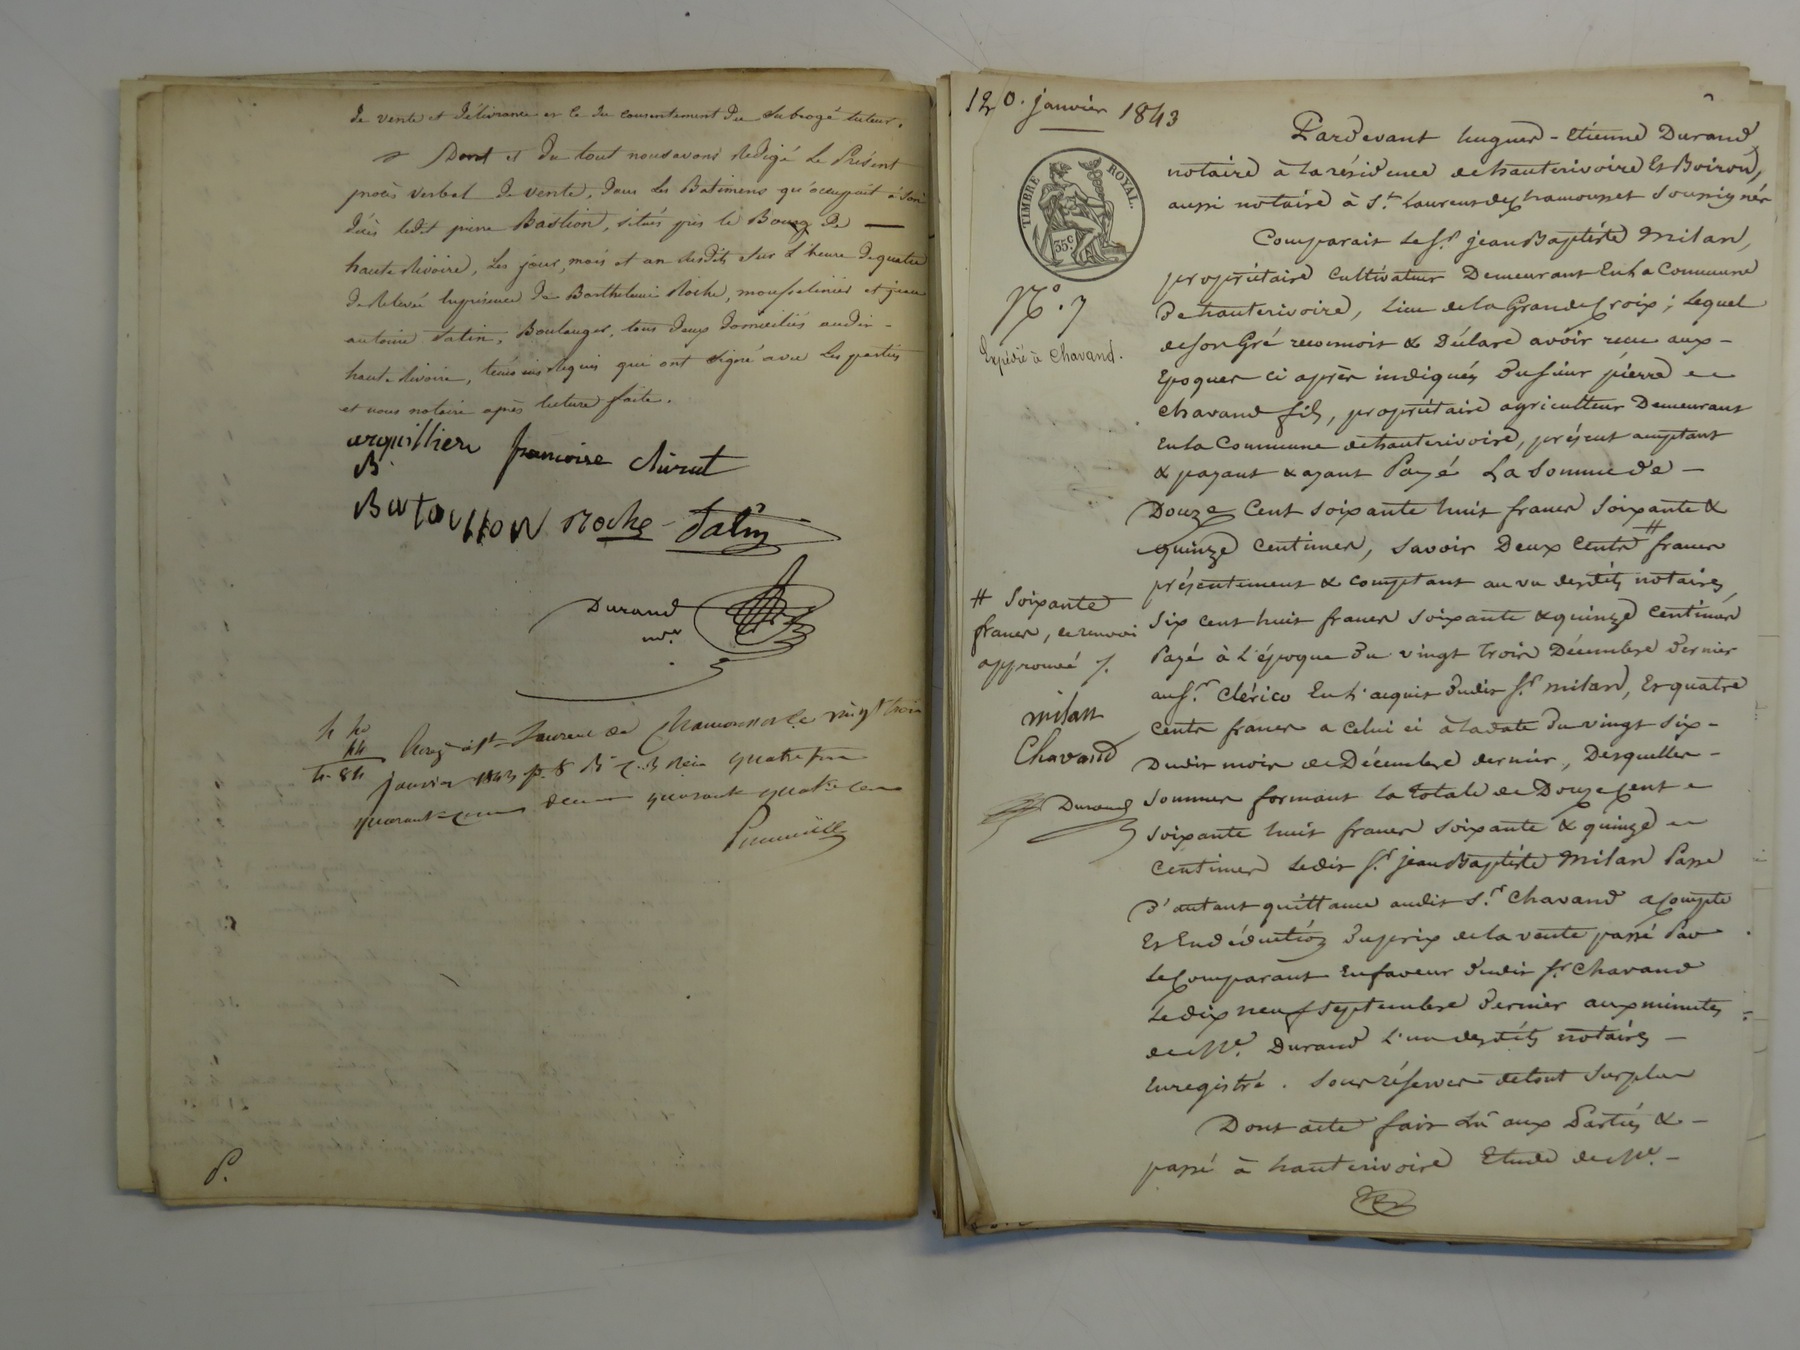 de vente et délivrance et le du consentement du subrogé tuteur.
Dont et du tout nous avons rédigé le présent
procès verbal de vente, dans les Batimens qu'occupait à son
décès ledit pierre Bastion, situés près le Bourg de —
haute Rivoire, les jour, mois et an susdits sur l'heure de quatre
de Relevée En présence de Barthelemi Roche, mousselinier et jean
antoine Salin, Boulanger, tous deux domiciliés audit -
haute Rivoire, témoins Requis qui ont signé avec les parties
et nous notaire après lecture faite.
françoise
B.
Roche Salin
Durand
nre
Laurent de Chamousset le vingt trois
janvier 1843 quatre francs
quarante quatre
P.
120. janvier 1843
TIMBRE ROYAL.
35c
No. 7
Expédié à Chavand.
Pardevant hugues-Etienne Durand,
notaire à la résidence de hauterivoire Et Boiron,
aussi notaire à St. Laurent de chamousset soussignés
Comparait le Sr. jean Baptiste Milan,
propriétaire Cultivateur Demeurant En la Commune
de hauterivoire, Lieu de la Grande Croix; Lequel
de son Gré reconnoit & Déclare avoir reçu aux-
époques ci après indiqués du sieur pierre
chavand fils, propriétaire agriculteur Demeurant
En la Commune de hauterivoire, présent acceptant
& payant & ayant Payé La Somme de —
Douze Cent soixante huit francs soixante &
quinze centimes, savoir Deux Cents # francs
présentement & comptant au vu desdits notaires,
six cent huit francs soixante & quinze Centimes
Payé à l'époque du vingt trois Décembre dernier
au Sr. Clérico En l'acquit dudit Sr. Milan, Et quatre
Cents francs a Celui ci à la date du vingt six-
Dudit mois de Décembre dernier, Desquelles-
Sommes formant La totale de Douze Cent
soixante huit francs soixante & quinze
Centimes Ledit Sr. jean Baptiste Milan Passe
d'autant quittance audit Sr. Chavand a Compte
Et En déduction du prix de la vente passé Par
le Comparant En faveur dudit Sr Chavand
Le dix neuf septembre dernier aux minutes
de Me. Durand L'un desdits notaires —
Enregistré. Sous réserves de tout surplus
Dont acte fait Lû aux Parties & —
passé à hauterivoire Etude de Me. —
# Soixante
francs, le renvoi
approuvé /.
milan
Chavand
Durand